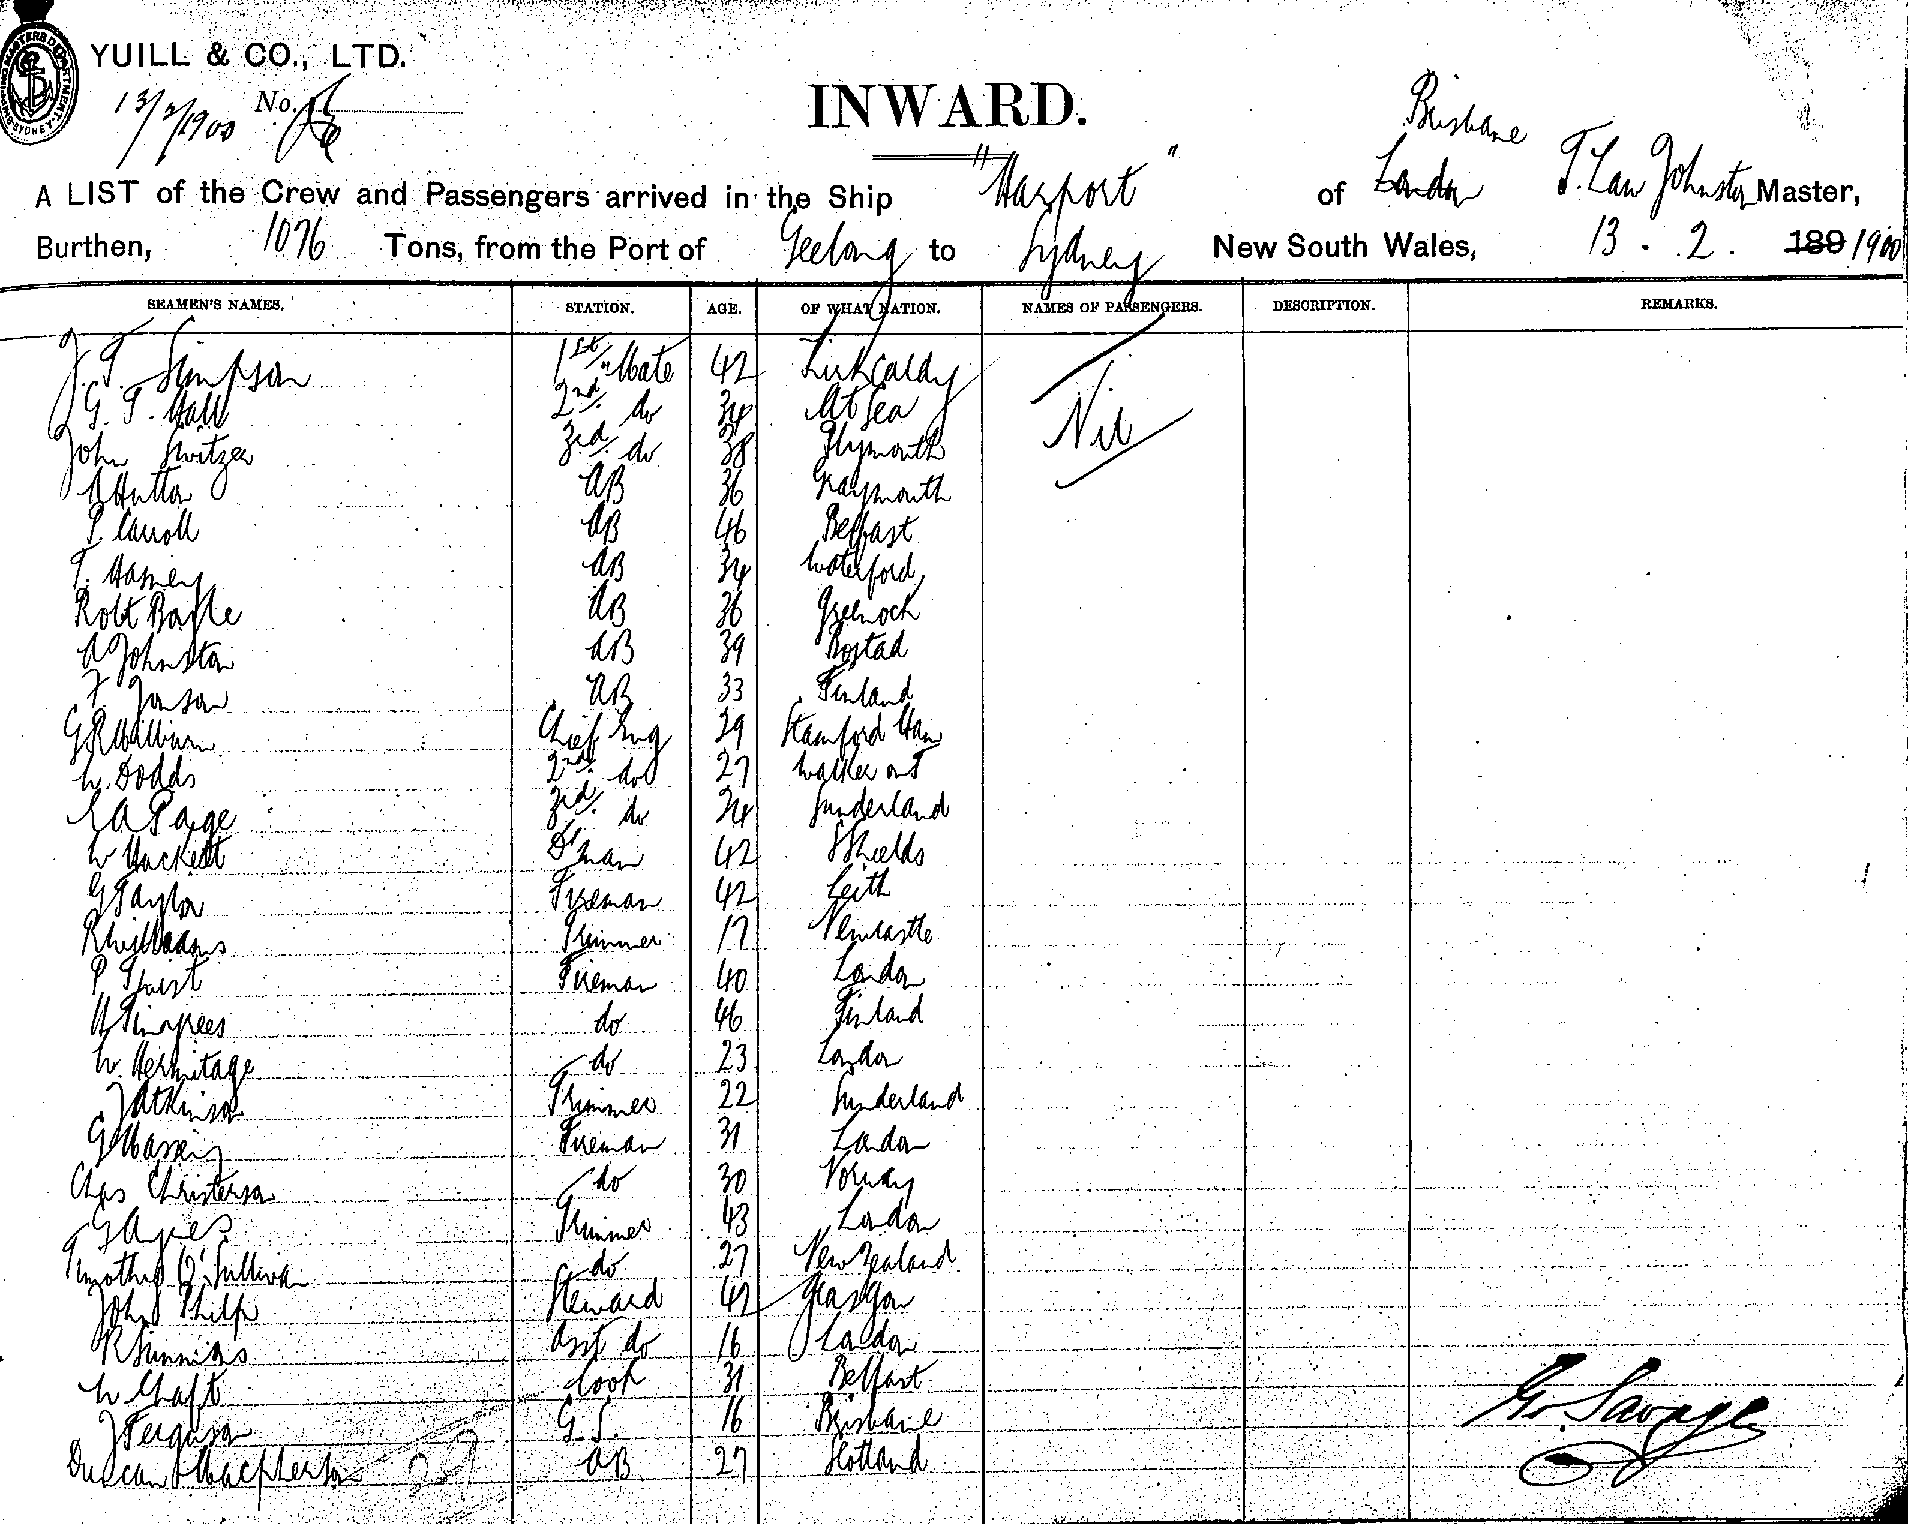 YUILL & CO., LTD.
13/2/1900 No.
INWARD.
Brisbane
A LIST of the Crew and Passengers arrived in the Ship "Hazport" of London T. Law Johnston Master,
Burthen, 1076 Tons, from the Port of Geelong to Sydney New South Wales, 13 . 2 . 189 1900
SEAMEN'S NAMES. STATION. AGE. OF WHAT NATION. NAMES OF PASSENGERS. DESCRIPTION. REMARKS.
J. T. Simpson 1st Mate 42 Kirkcaldy
G. T. Hall 2nd do 34 At Sea Nil
John Switzer 3rd do 38 Plymouth
A Hutton AB 36 Graymouth
P. Carroll AB 46 Belfast
T. AB 34 Waterford
Robt Boyle AB 36 Greenock
A Johnston AB 39 Rostad
F Jonson AB 33 Finland
G R Milburn Chief Eng 39 Stamford Ham
W. Dodds 2nd do 27 Walker on T
E A Page 3rd do 24 Sunderland
W Hackett D'man 42 S Shields
G Taylor Fireman 42 Leith
R Williams Trimmer 17 Newcastle
P Fireman 40 London
do 46 Finland
W. Hermitage do 23 London
J Atkinson Trimmer 22 Sunderland
G Massey Fireman 31 London
Chas Christerson do 30 Norway
G Ayres Trimmer 43 London
Timothy O'Sullivan do 27 New Zealand
John Philp Steward 42 Glasgow
R Simmons Asst do 16 London
W Cook 31 Belfast
J Ferguson G. S. 16 Brisbane
Duncan Macpherson AB 27 Scotland
G. Savage